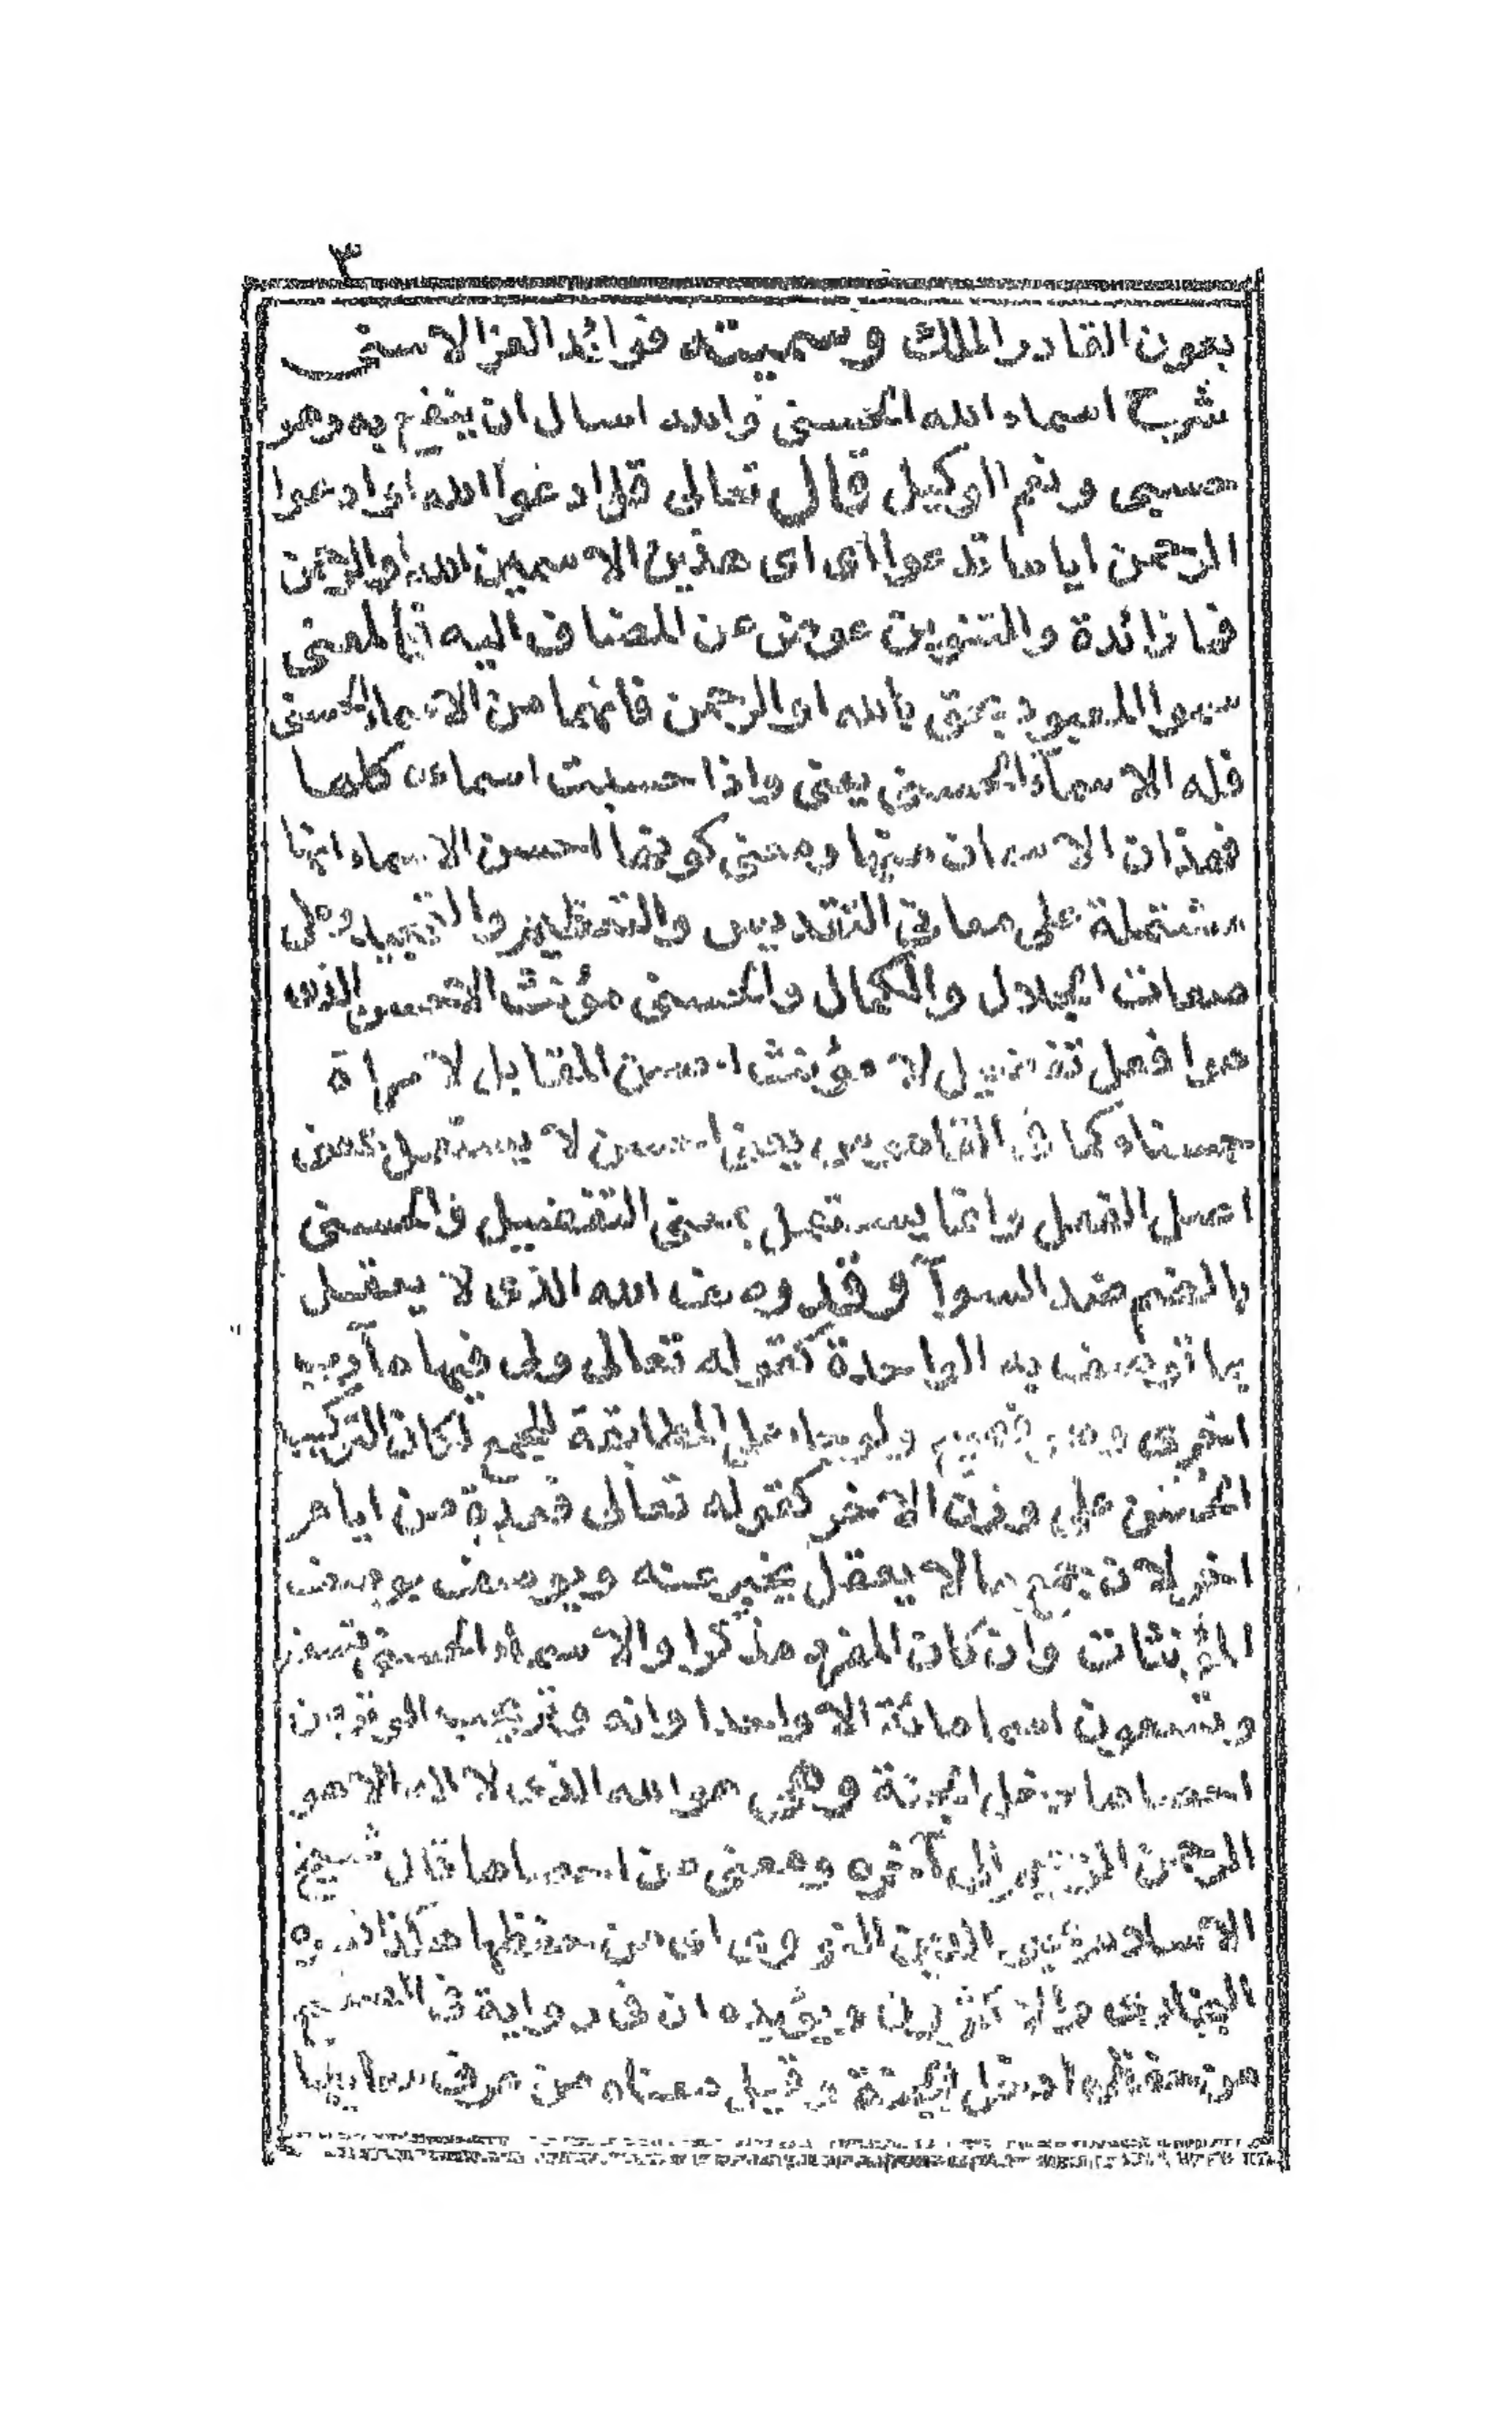 ٣
بعون القادر الملك وسميته فوائد العز الاسنى
شرح اسماء الله الحسنى والله اسال ان ينفع به وهو
حسبى ونعم الوكيل قال تعالى قل ادعوا الله او ادعوا
الرحمن ايا ما تدعوا اى اى هذين الاسمين الله او الرحمن
فما زائدة والتنوين عوض عن المضاف اليه المعنى
سموا المعبود بحق بالله او الرحمن فانهما من الاسماء الحسنى
فله الاسماء الحسنى يعنى واذا حسبت اسماءه كلها
فهذان الاسمان منها ومعنى كونها احسن الاسماء انها
مشتملة على معانى التقديس والتعظيم والتمجيد وعلى
صفات الجلال والكمال والحسنى مؤنث الاحسن الذى
هو افعل تفضيل لا مؤنث احسن المقابل لامراة
حسناء كما فى القاموس يعنى احسن لا يستعمل بمعنى
اصل الفعل وانما يستعمل بمعنى التفضيل والحسنى
بالضم ضد السوآ وقد وصف الله الذى لا يعقل
بما توصف به الواحدة كقوله تعالى ولى فيها مآرب
اخرى وهو فصيح ولو جاء على المطابقة للجمع لكان التركيب
الحسن على وزن الاخر كقوله تعالى فعدة من ايام
اخر لان جمع ما لا يعقل يخبر عنه ويوصف بوصف
المؤنثات وان كان المفرد مذكرا والاسماء الحسنى تسعة
وتسعون اسما مائة الا واحدا وانه وتر يحب الوتر من
احصاها دخل الجنة وهى هو الله الذى لا اله الا هو
الرحمن الرحيم الى آخره ومعنى من احصاها قال شيخ
الاسلام محيى الدين النووى اى من حفظها هكذا فسره
البخارى والاكثرون ويؤيده ان فى رواية فى الصحيح
من حفظها دخل الجنة وقيل معناه من عرف معانيها